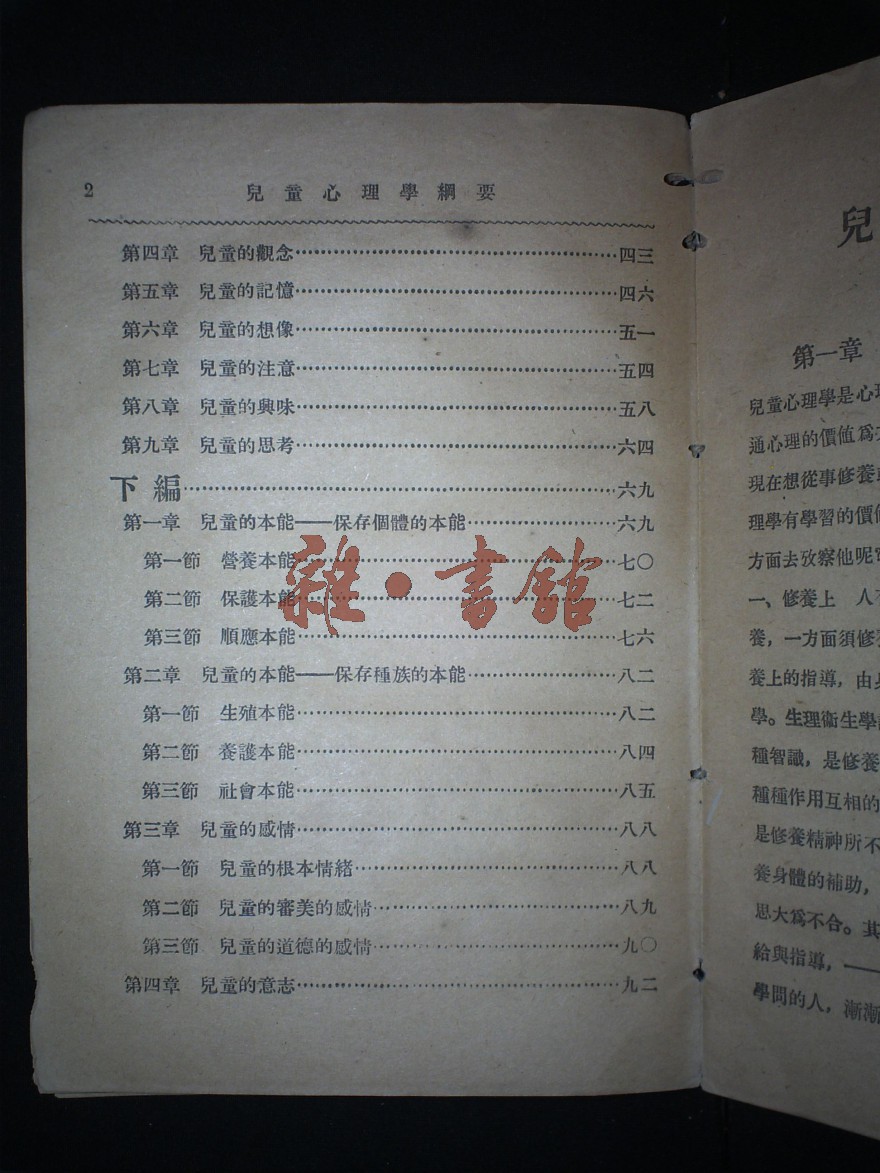 2 兒童心理學綱要
第四章 兒童的觀念……四三
第五章 兒童的記憶……四六
第六章 兒童的想像……五一
第七章 兒童的注意……五四
第八章 兒童的興味……五八
第九章 兒童的思考……六四
下編……六九
第一章 兒童的本能——保存個體的本能……六九
第一節 營養本能……七〇
第二節 保護本能……七二
第三節 順應本能……七六
第二章 兒童的本能——保存種族的本能……八二
第一節 生殖本能……八二
第二節 養護本能……八四
第三節 社會本能……八五
第三章 兒童的感情……八八
第一節 兒童的根本情緒……八八
第二節 兒童的審美的感情……八九
第三節 兒童的道德的感情……九〇
第四章 兒童的意志……九二
雜·書館
兒
第一章
兒童心理學是心理
通心理的價值爲
現在想從事修養
理學有學習的價值
方面去攷察他呢
一、修養上 人
養，一方面須修養
養上的指導，由
學。生理衞生學
種智識，是修養
種種作用互相的
是修養精神所不
養身體的補助，
思大爲不合。其
給與指導，——
學問的人，漸漸